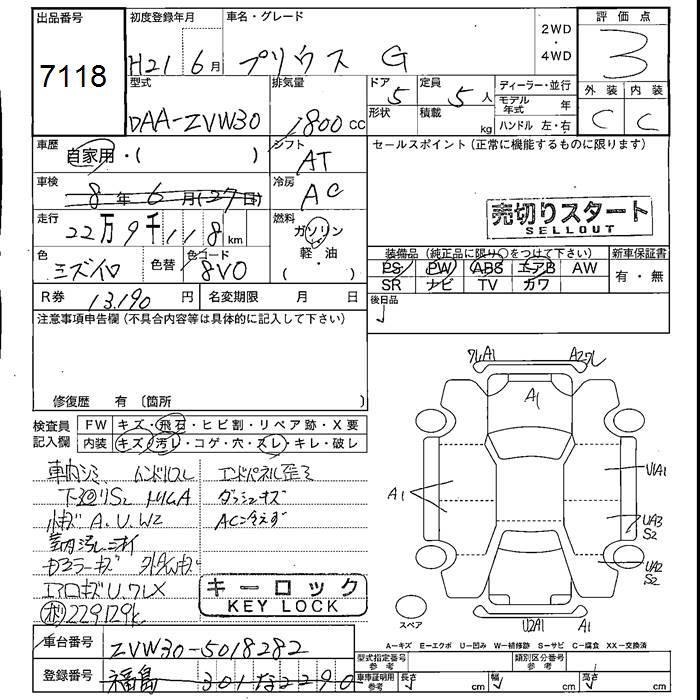 出品番号
7118
初度登録年月
H21 6月
車名・グレード
プリウス G
2WD
・
4WD
評価点
3
型式
DAA-ZVW30
排気量
1800 cc
ドア
5
形状
定員
5人
積載
kg
ディーラー・並行
モデル年式 年
ハンドル 左・右
外装 内装
C C
車歴
自家用・( )
シフト
AT
セールスポイント(正常に機能するものに限ります)
車検
8年 6月(27日)
冷房
AC
売切りスタート
SELLOUT
走行
22万9千118 km
燃料
ガソリン
軽・油
( )
色
ミズイロ
色替
色コード
8V0
装備品(純正品に限り○をつけて下さい)
新車保証書
PS PW ABS エアB AW
有・無
SR ナビ TV カワ
R券 13,190 円
名変期限 月 日
後日品
注意事項申告欄(不具合内容等は具体的に記入して下さい)
修復歴 有(箇所 )
検査員
記入欄
FW キズ・飛石・ヒビ割・リペア跡・X要
内装 キズ・汚レ・コゲ・穴・スレ・キレ・破レ
車内シミ ハンドルスレ
エンドパネル歪ミ
下廻りS2
ダッシュキズ
小キズ A.U.W2
AC冷えず
エアロキズU.ワレX
229129k
キーロック
KEY LOCK
ワレA1 A2ワレ
A1
A1
U1A1
UA3
S2
UA2
S2
スペア
U2A1 A1
A=キズ E=エクボ U=凹み W=補修跡 S=サビ C=腐食 XX=交換済
車台番号
ZVW30-5018282
登録番号
福島 301 な 2290
型式指定番号
参考
類別区分番号
参考
車庫証明用
参考
長さ cm
幅 cm
高さ cm